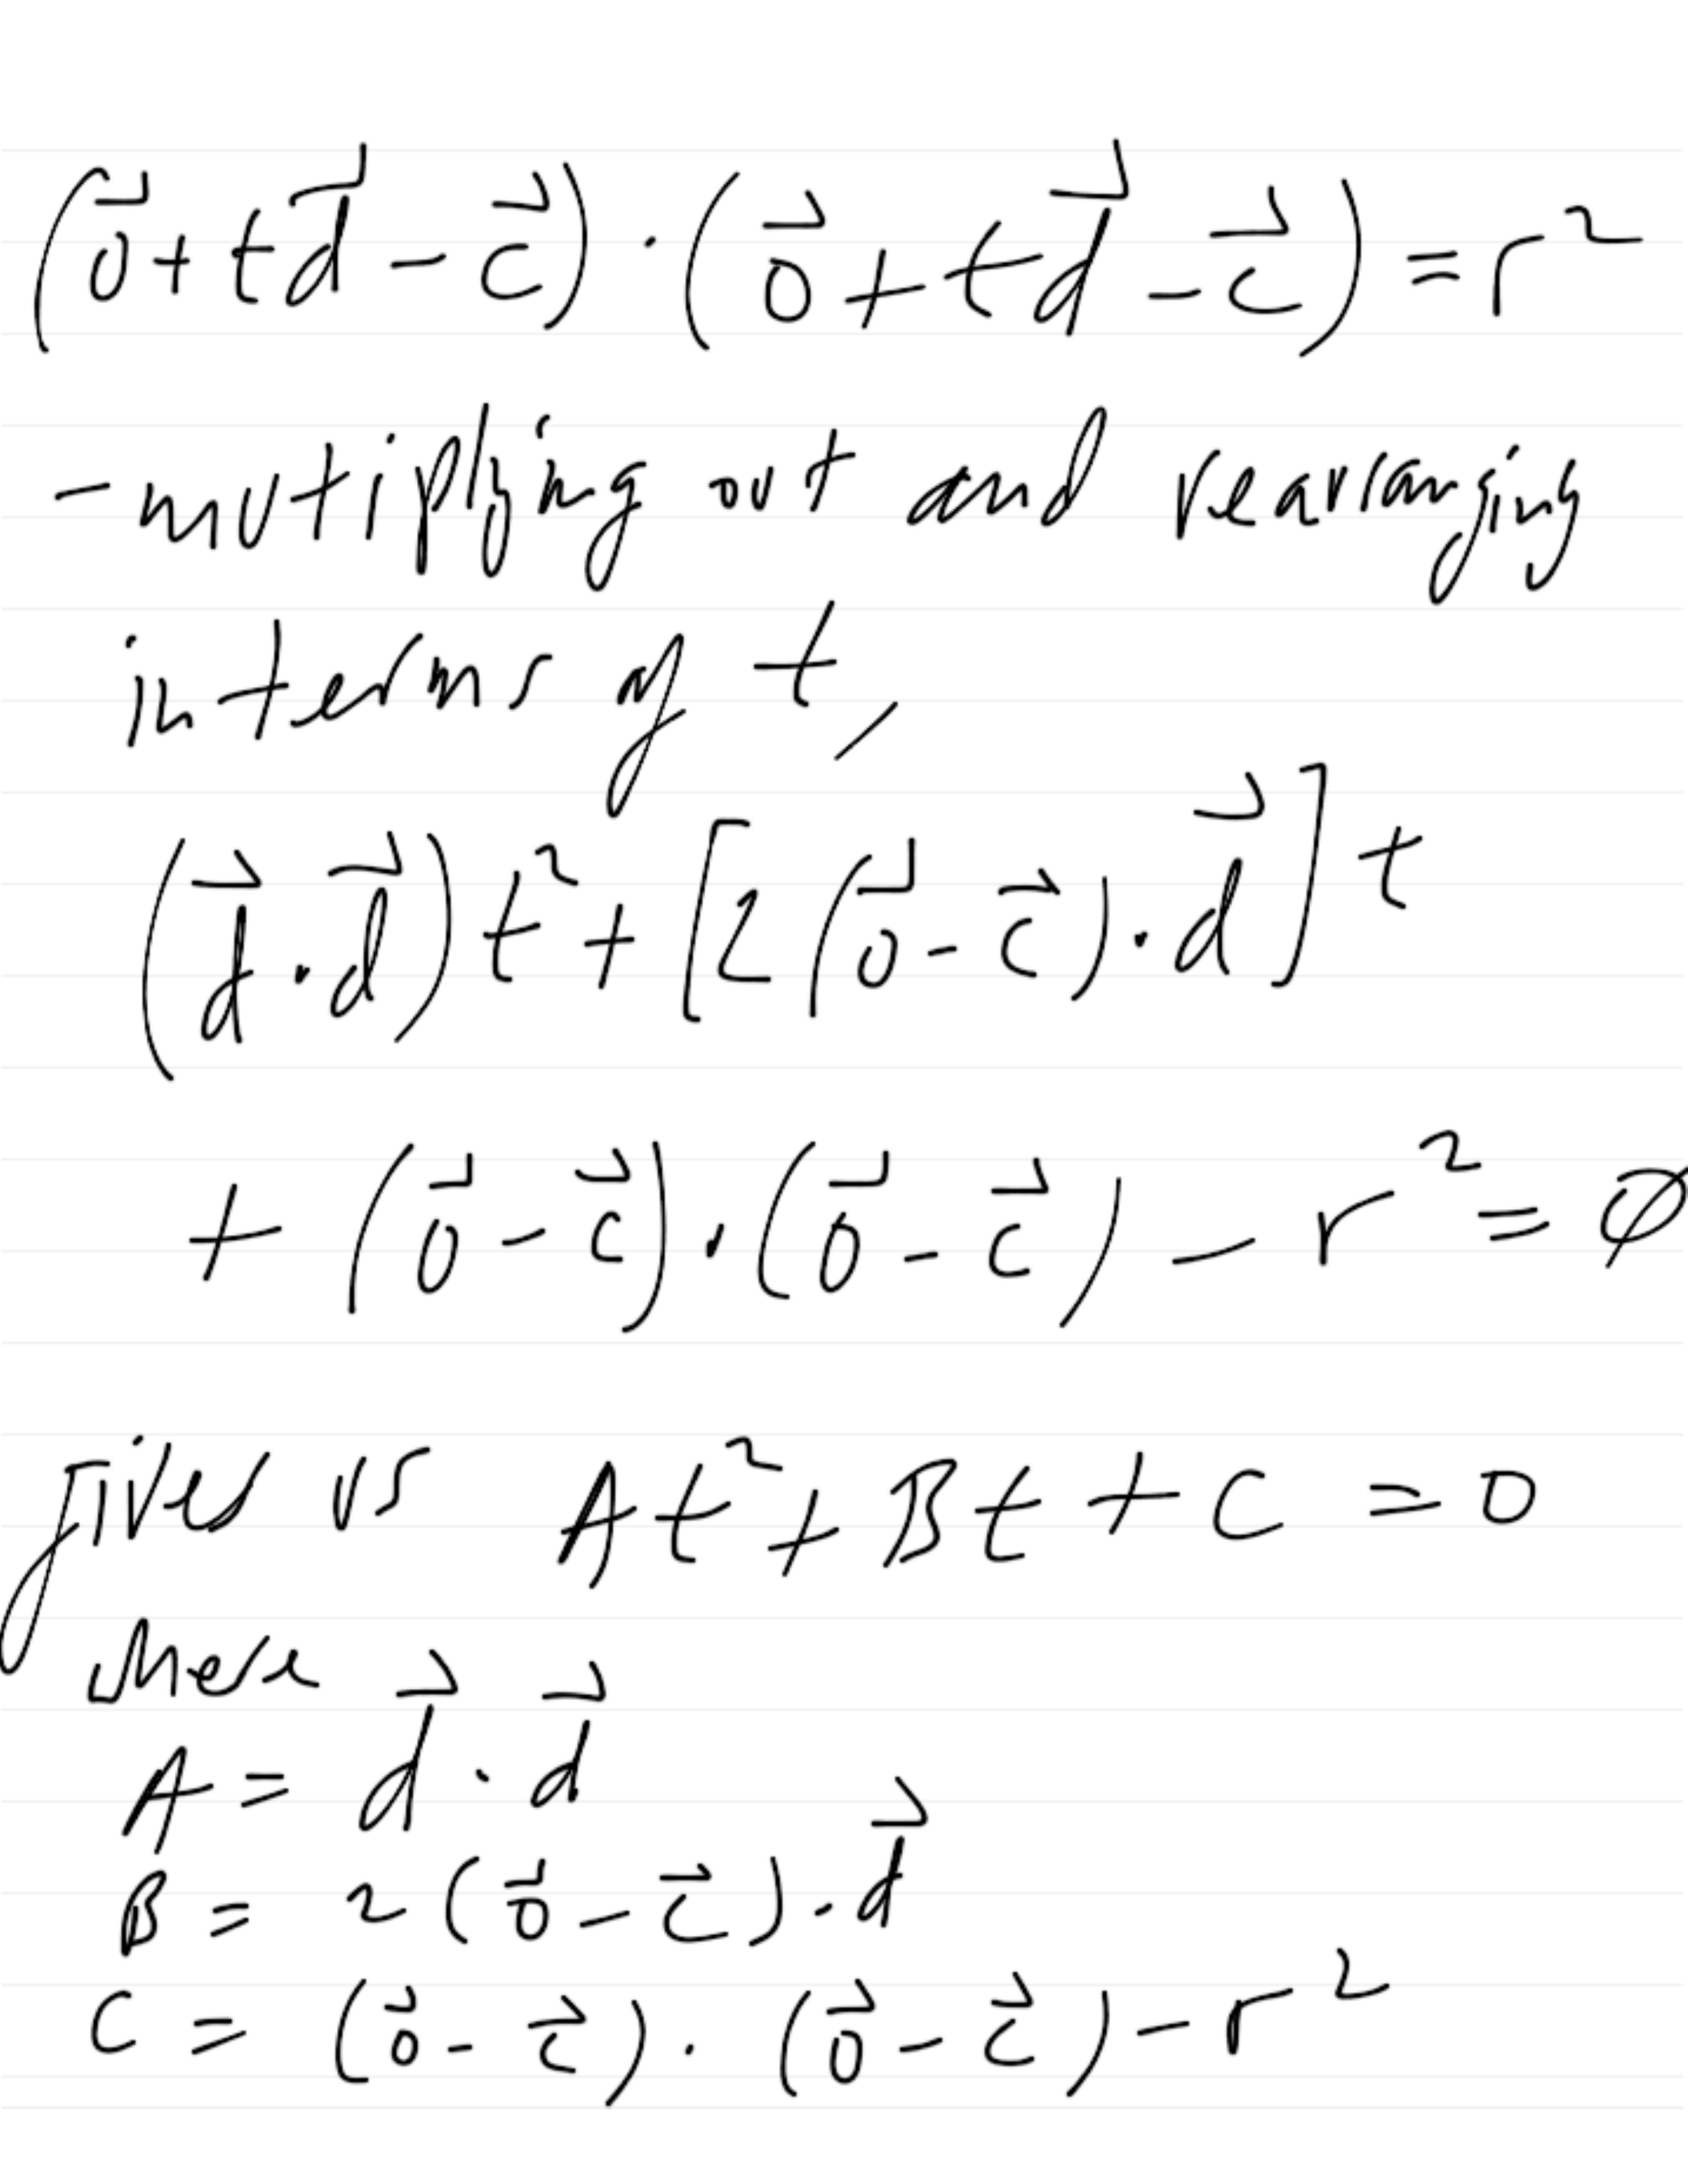 (o⃗ + td⃗ - c⃗) · (o⃗ + td⃗ - c⃗) = r²
- mutiplying out and rearranging
in terms of t,
(d⃗ · d⃗)t² + [2(o⃗ - c⃗) · d⃗]t
+ (o⃗ - c⃗) · (o⃗ - c⃗) - r² = ∅
gives us At² + Bt + C = 0
where
A = d⃗ · d⃗
B = 2(o⃗ - c⃗) · d⃗
C = (o⃗ - c⃗) · (o⃗ - c⃗) - r²